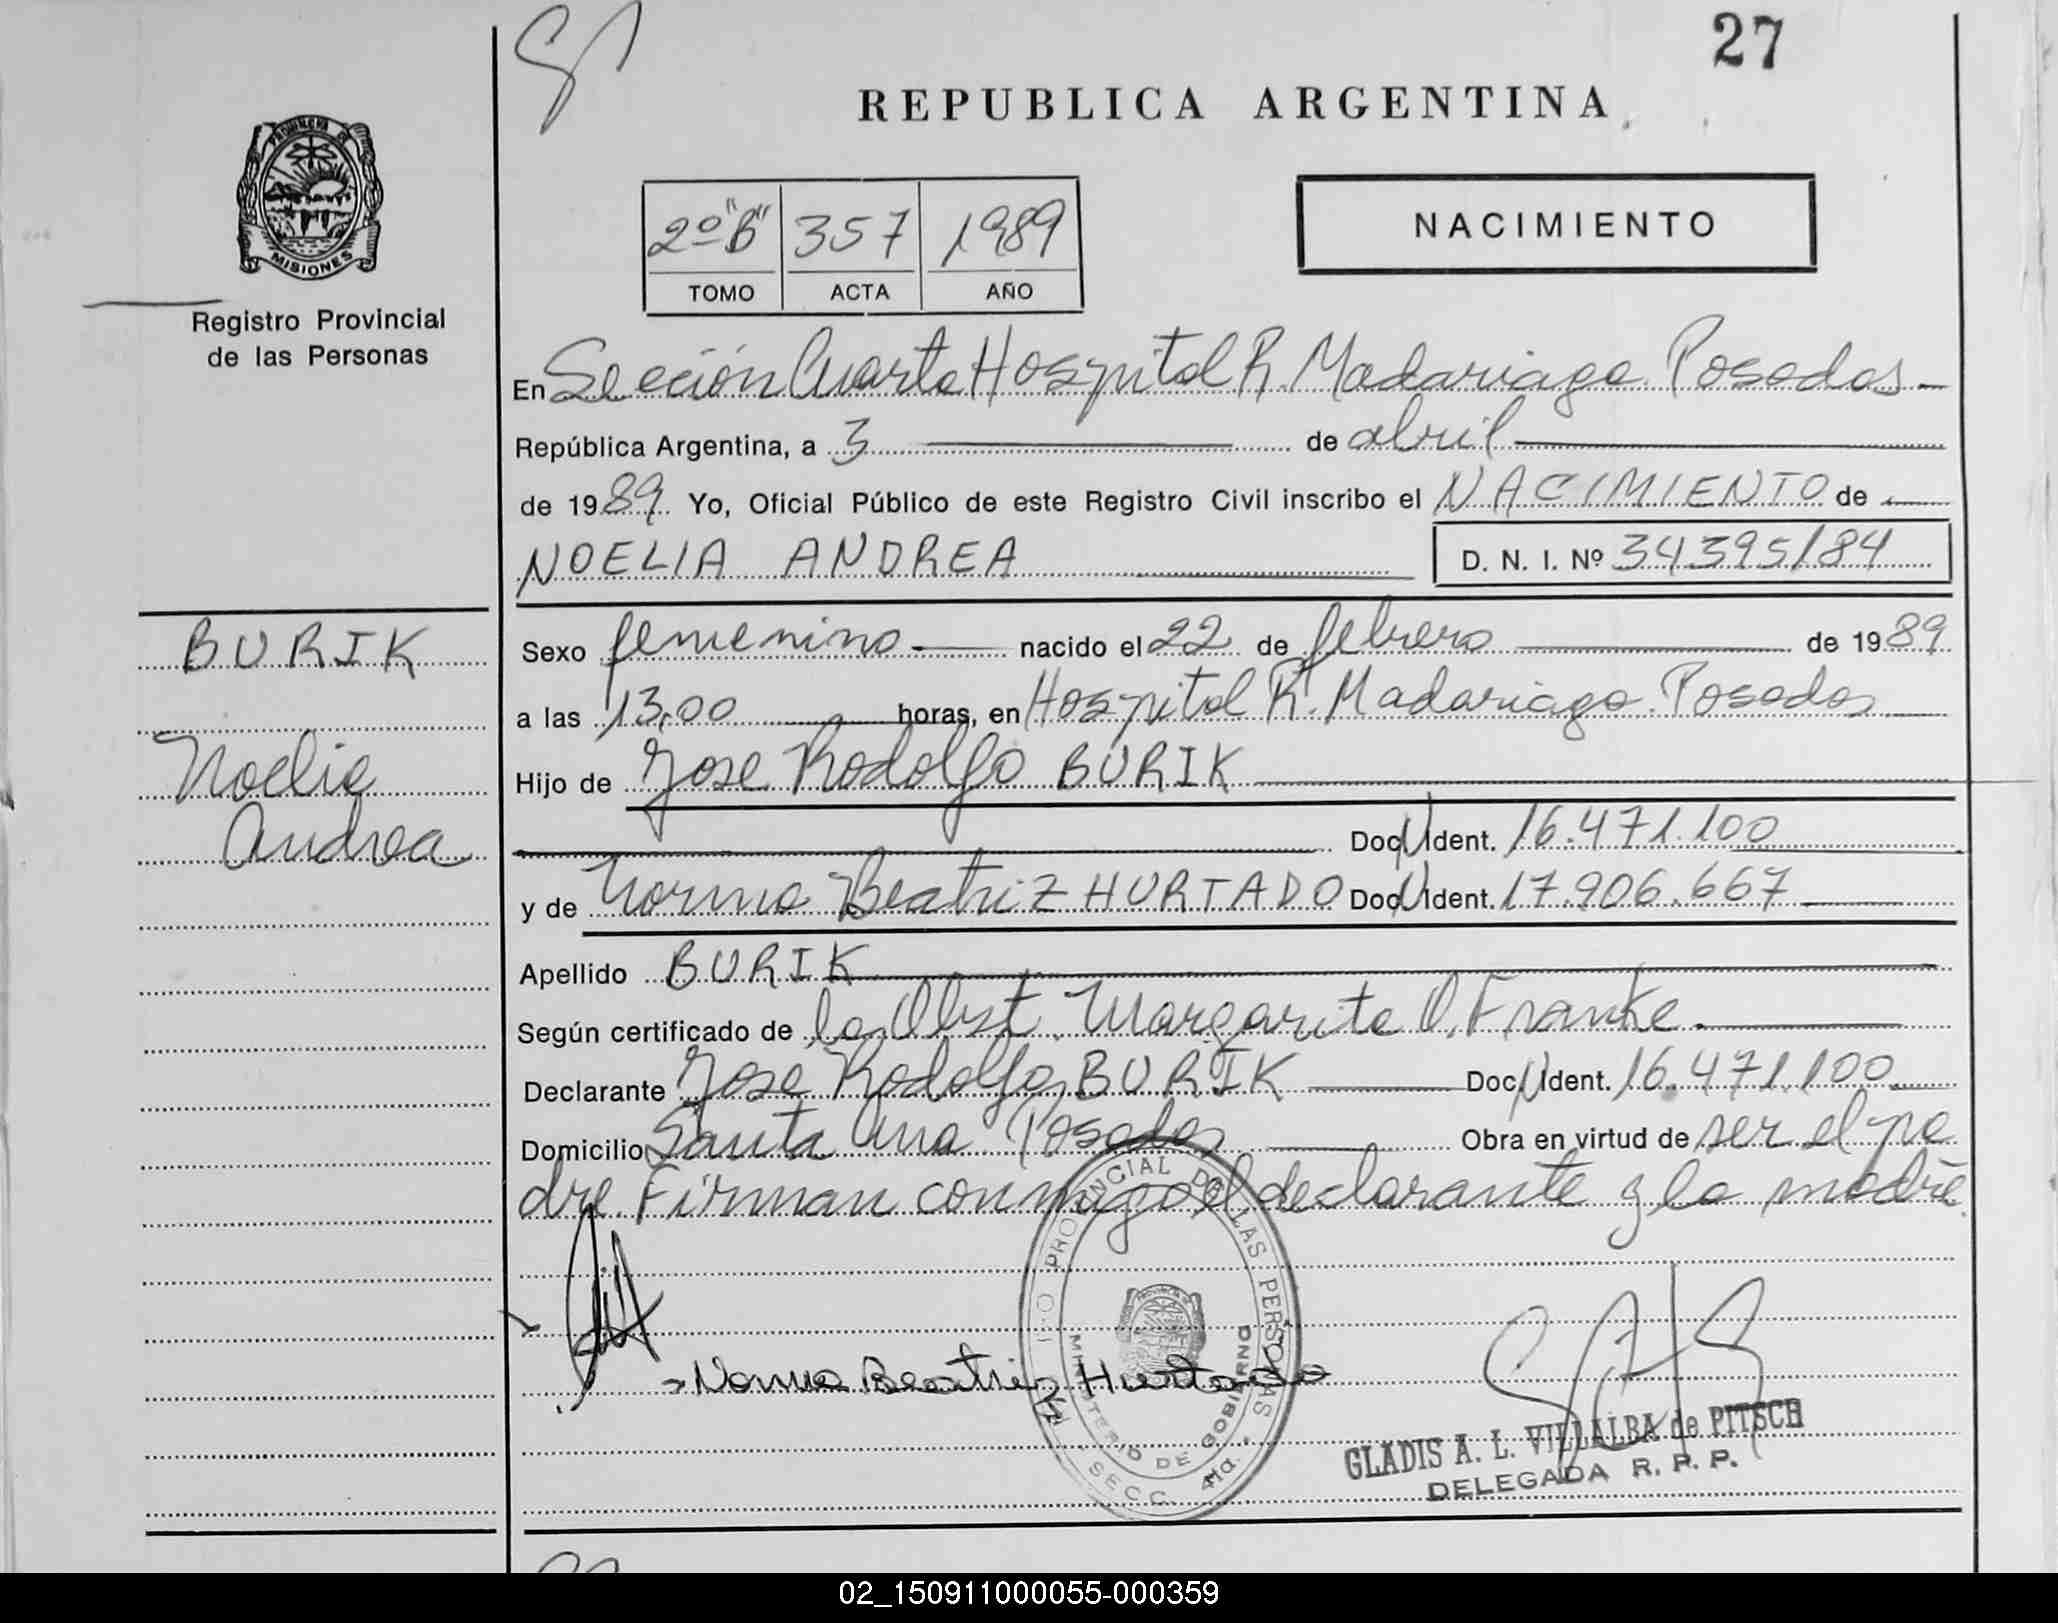 27
REPUBLICA ARGENTINA
PROVINCIA DE
MISIONES
Registro Provincial
de las Personas
2º "B" 357 1989
TOMO ACTA AÑO
NACIMIENTO
En Sección Cuarta Hospital R. Madariaga. Posadas
República Argentina, a 3 de abril
de 1989 Yo, Oficial Público de este Registro Civil inscribo el NACIMIENTO de
NOELIA ANDREA D. N. I. Nº 34395184
BURIK
Noelia
Andrea
Sexo femenino nacido el 22 de febrero de 1989
a las 13,00 horas, en Hospital R. Madariaga. Posadas
Hijo de Jose Rodolfo BURIK
Doc. Ident. 16.471.100
y de Norma Beatriz HURTADO Doc. Ident. 17.906.667
Apellido BURIK
Según certificado de la Obst. Margarita O. Franke.
Declarante Jose Rodolfo BURIK Doc. Ident. 16.471.100
Domicilio Santa Ana Posadas Obra en virtud de ser el pa
dre. Firman conmigo el declarante y la madre.
PROVINCIAL DE LAS PERSONAS
MINISTERIO DE GOBIERNO
SECC. 4ta.
Norma Beatriz Hurtado
GLADIS A. L. VILLALBA de PITSCH
DELEGADA R. P. P.
02_150911000055-000359